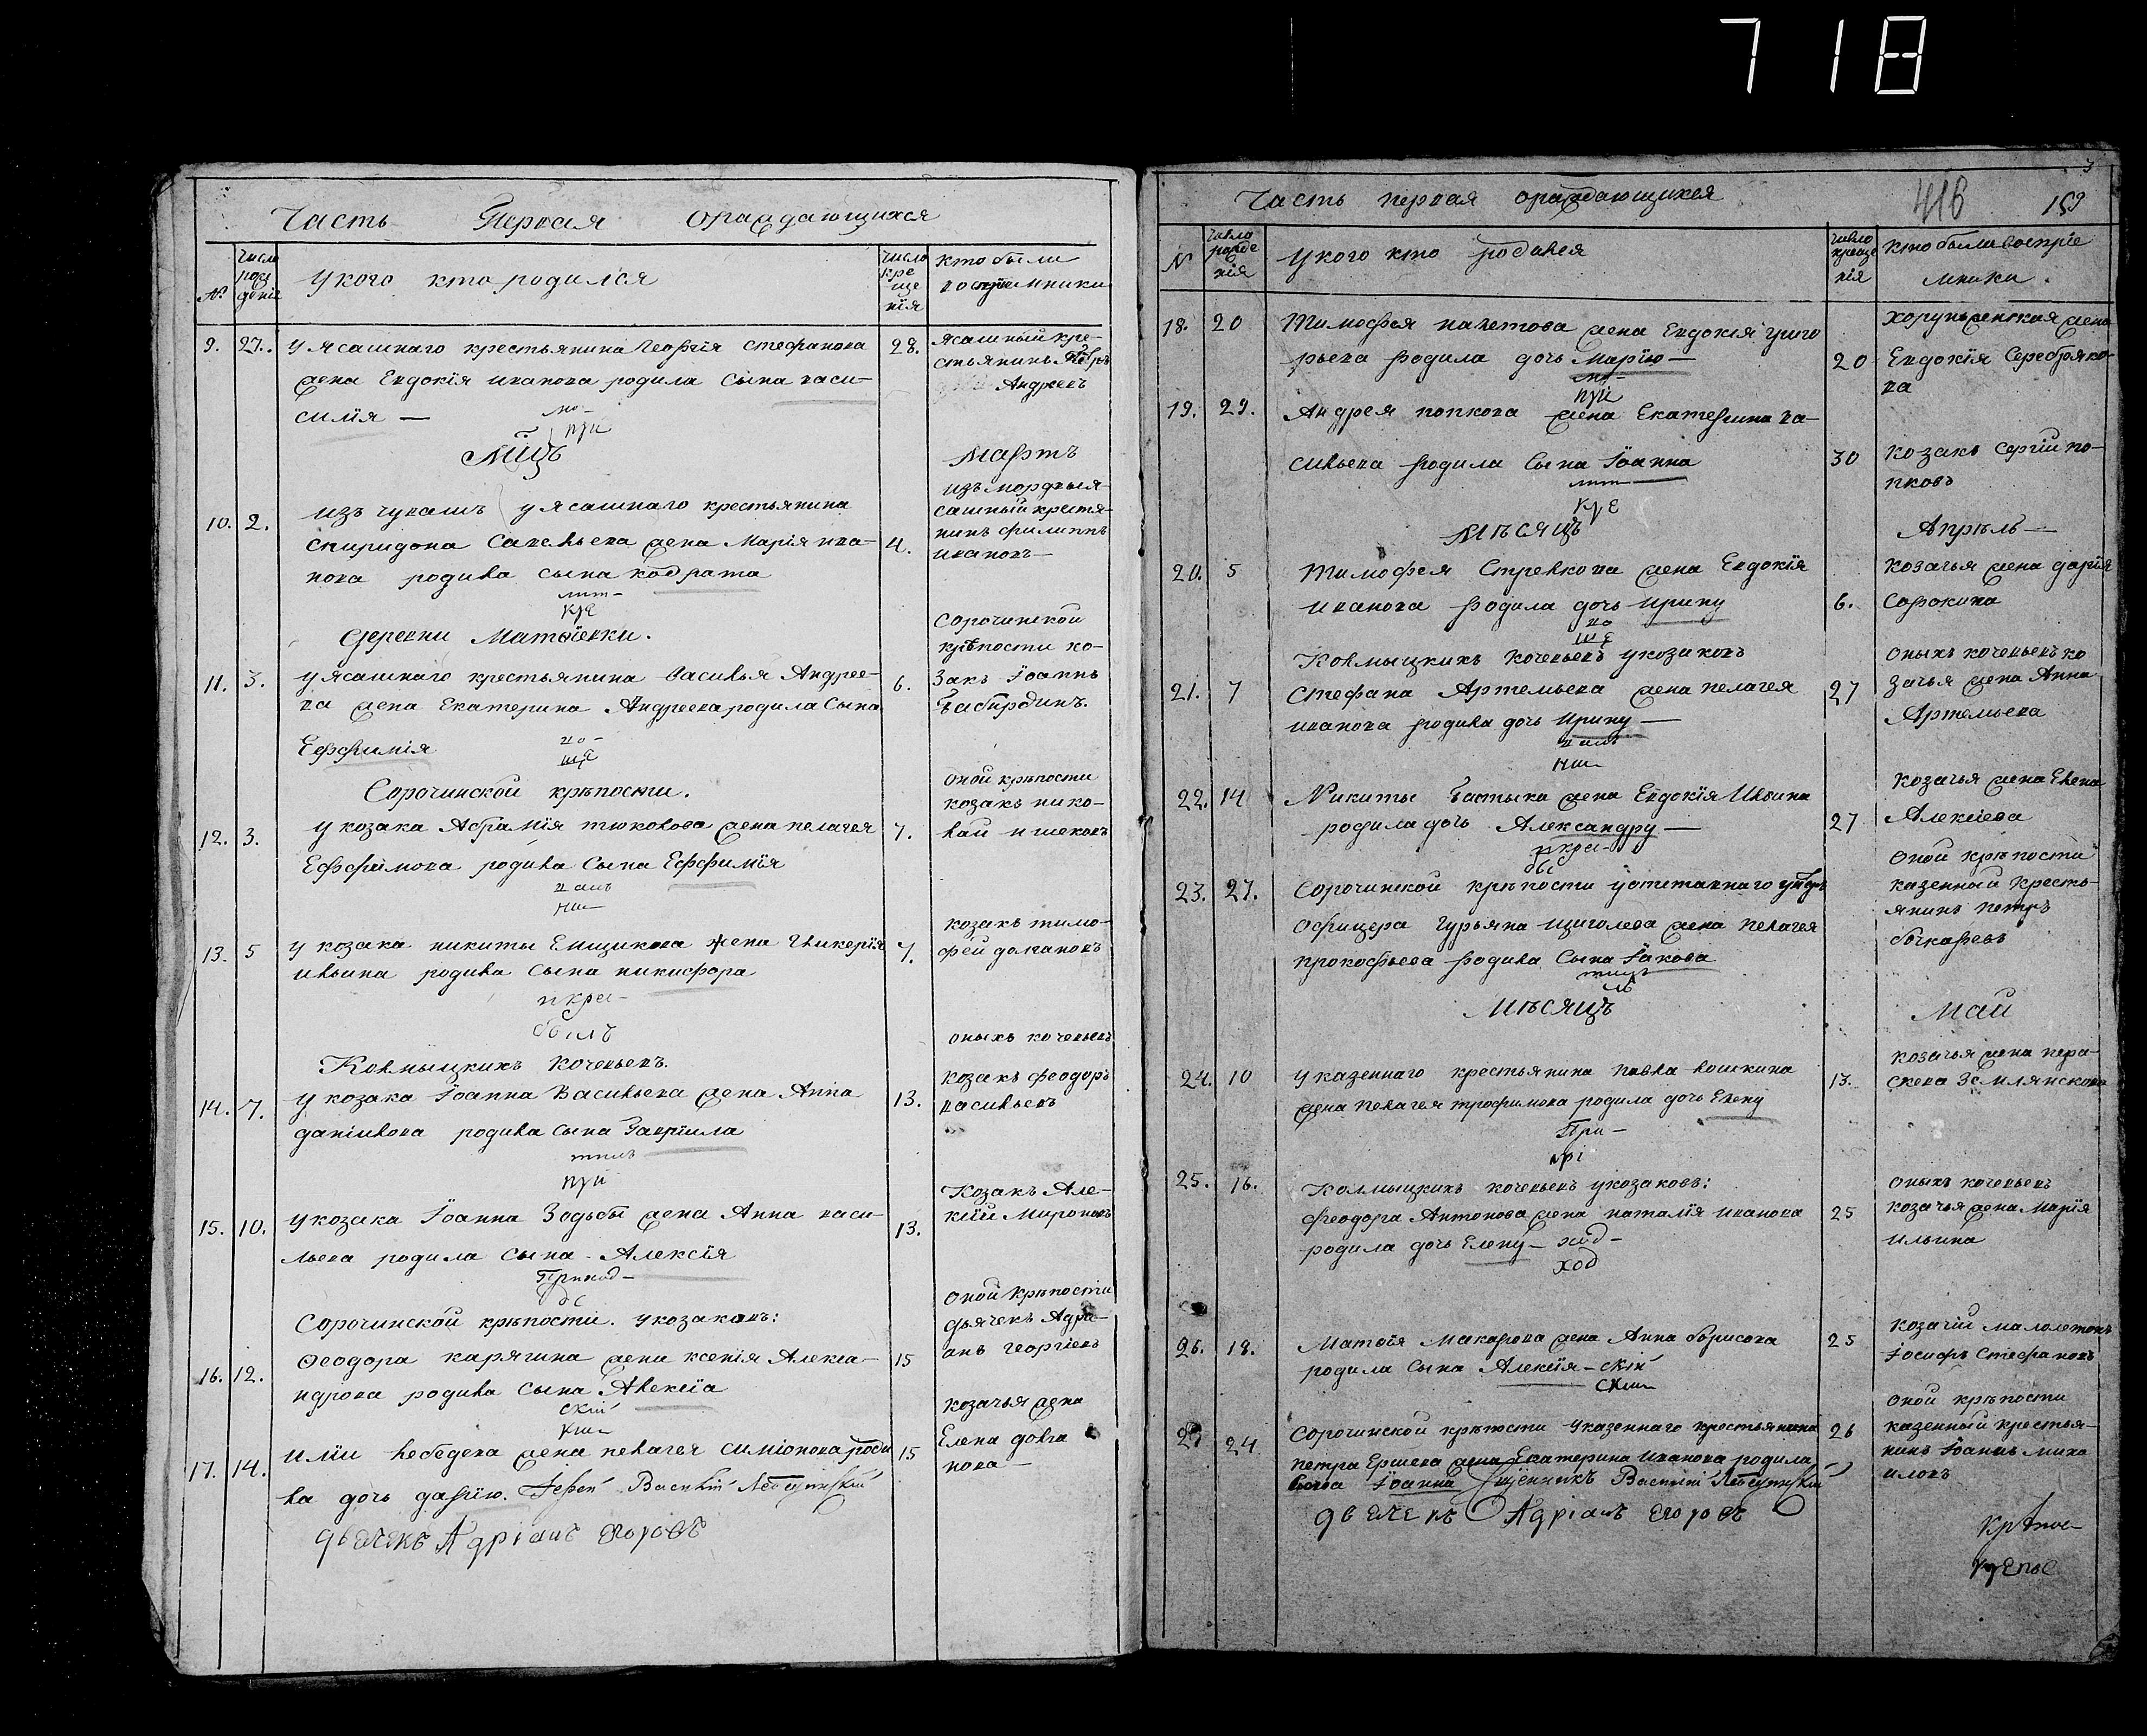 718
Часть Первая ораждающихся
№ число рождения
у кого кто родился
число крещения
кто были восприемники
9. 27. у Ясашнаго крестьянина Георгія Стефанова
жена Евдокія Иванова родила сына Васи-
силія —
28. Ясашный кре-
стьянинъ Петръ
Андреевъ
мо-
при
Мцъ Мартъ
10. 2. изъ чувашъ у ясашнаго крестьянина
Спиридона Савельева жена Марія Ива-
нова родила сына кодрата
4. изъ мордвы я-
сашный крестя-
нинъ Филиппъ
Ивановъ —
Деревни Матвіевки.
11. 3. у ясашнаго крестьянина Василья Андрее-
ва жена Екатерина Андреева родила сына
Еффимія
6. Сорочинской
крѣпости ко-
закъ Іоаннъ
Сорочинской крѣпости.
12. 3. у козака Абрамія тюкова жена пелагея
Еффимова родила сына Еффимія
7. оной крѣпости
козакъ нико-
лай
13. 5 у козака никиты Емщикова жена Гликерія
Ильина родила сына никифора
7. козакъ тимо-
фей долгановъ
Колмыцкихъ кочевьевъ.
14. 7. у козака Іоанна Васильева жена Анна
данілова родила сына Гавріила
13. оныхъ кочевьевъ
козакъ феодоръ
васильевъ
15. 10. у козака Іоанна Зодьбы жена Анна васи-
льева родила сына Алексія
13. Козакъ Але-
ксій Мироновъ
Сорочинской крѣпости. у козаковъ:
16. 12. Феодора карягина жена ксенія Алекса-
ндрова родила сына Алексіа
15 оной крѣпости
дьячекъ Адрі-
анъ георгіевъ
17. 14. Иліи лебедева жена пелагея симіонова роди
ла дочь дарію. Іерей Василій
15 козачья жена
Елена долга
нова —
дьячекъ Адріанъ егоровъ
Часть первая ораждающихся
416 159
№ число рожденія
у кого кто родился
число крещенія
кто были воспріемники.
18. 20 Тимофея пахотова жена Евдокія григо
рьева родила дочь Марію —
20 хорунженская жена
Евдокія Серебряко-
ва
19. 29. Андрея попкова жена Екатерина Ва-
сильева родила сына Іоанна
30 козакъ Сергій по-
пковъ
Мѣсяцъ Апрѣль —
20. 5 Тимофея Стрелкова жена Евдокія
Иванова родила дочь Ирину
6. козачья жена дарія
Сорокина
Колмыцкихъ кочевьевъ у козаковъ
21. 7 Стефана Артемьева жена пелагея
Иванова родила дочь Ирину —
27 оныхъ кочевьевъ ко
зачья жена Анна
Артемьева
22. 14 Никиты Бастыка жена Евдокія Ильина
родила дочь Александру —
27 козачья жена Елена
Алексіева
23. 27. Сорочинской крѣпости у отставнаго ундеръ
Офицера Гурьяна Щиголева жена пелагея
прокофьева родила сына Іакова
оной крѣпости
казенный кресть-
янинъ петръ
бочкаревъ
Мѣсяцъ Май
24. 10 у казеннаго крестьянина павла лошкина
жена пелагея трофимова родила дочь Елену
13. козачья жена пара-
скева Землянскова
25. 16. Колмыцкихъ кочевьевъ у козаковъ:
Феодора Антонова жена наталія иванова
родила дочь Елену —
25 оныхъ кочевьевъ
козачья жена Марія
Ильина
26. 18. Матвія Макарова жена Анна борисова
родила сына Алексія —
25 козачій малолетокъ
Іосифъ Стефановъ
27 24 Сорочинской крѣпости у казеннаго крестьянина
петра Ершева жена Екатерина Иванова родила
сына Іоанна Священникъ Василій
26 оной крѣпости
казенный крестья-
нинъ Іоаннъ миха
иловъ
дьячекъ Адріанъ егоровъ